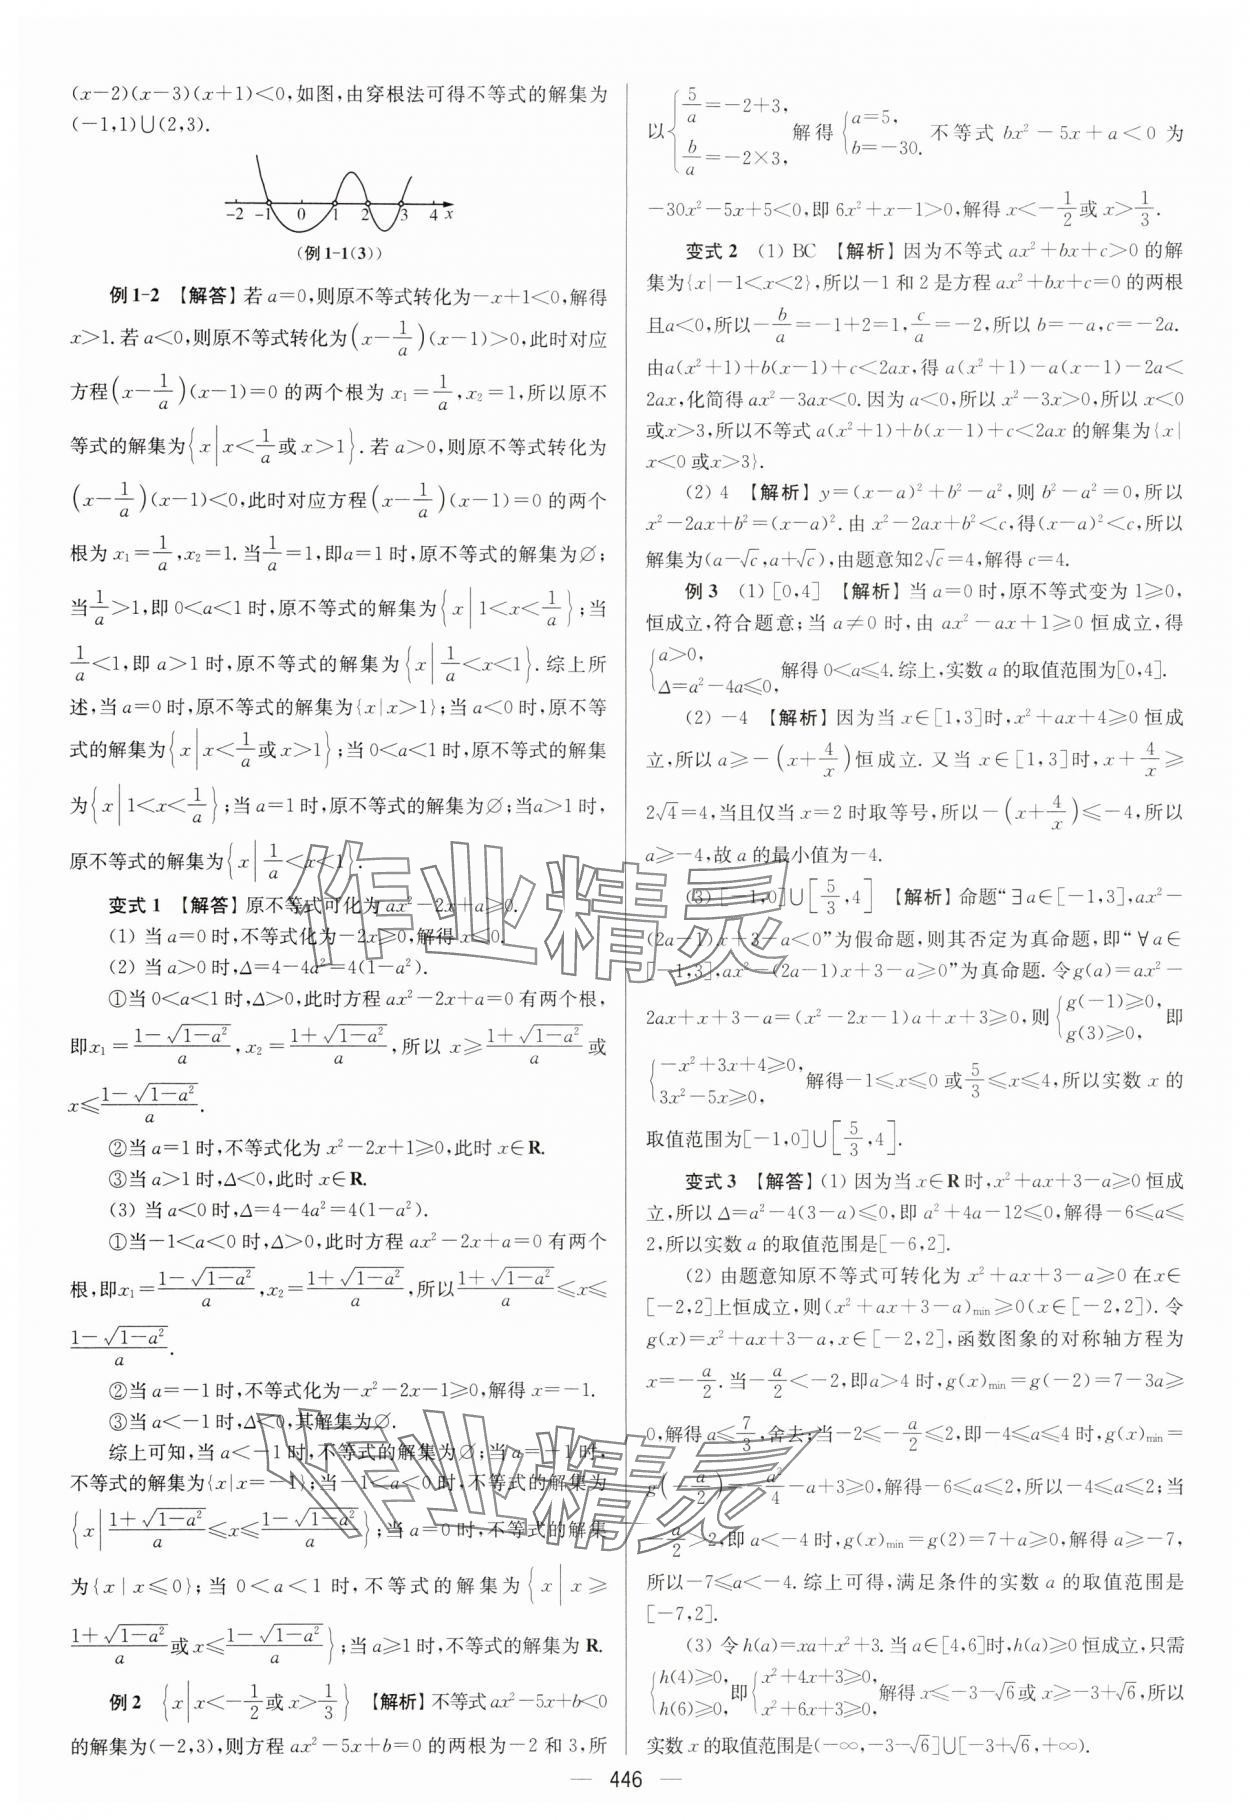 (x-2)(x-3)(x+1)<0,如图,由穿根法可得不等式的解集为
(-1,1)∪(2,3).
-2 -1 0 1 2 3 4 x
(例1-1(3))
例1-2 【解答】若a=0,则原不等式转化为-x+1<0,解得
x>1.若a<0,则原不等式转化为(x-1/a)(x-1)>0,此时对应
方程(x-1/a)(x-1)=0的两个根为x₁=1/a,x₂=1,所以原不
等式的解集为{x|x<1/a或x>1}.若a>0,则原不等式转化为
(x-1/a)(x-1)<0,此时对应方程(x-1/a)(x-1)=0的两个
根为x₁=1/a,x₂=1.当1/a=1,即a=1时,原不等式的解集为∅;
当1/a>1,即0<a<1时,原不等式的解集为{x|1<x<1/a};当
1/a<1,即a>1时,原不等式的解集为{x|1/a<x<1}.综上所
述,当a=0时,原不等式的解集为{x|x>1};当a<0时,原不等
式的解集为{x|x<1/a或x>1};当0<a<1时,原不等式的解集
为{x|1<x<1/a};当a=1时,原不等式的解集为∅;当a>1时,
原不等式的解集为{x|1/a<x<1}.
变式1 【解答】原不等式可化为ax²-2x+a≥0.
(1) 当a=0时,不等式化为-2x≥0,解得x≤0.
(2) 当a>0时,Δ=4-4a²=4(1-a²).
①当0<a<1时,Δ>0,此时方程ax²-2x+a=0有两个根,
即x₁=(1-√(1-a²))/a,x₂=(1+√(1-a²))/a,所以x≥(1+√(1-a²))/a或
x≤(1-√(1-a²))/a.
②当a=1时,不等式化为x²-2x+1≥0,此时x∈R.
③当a>1时,Δ<0,此时x∈R.
(3) 当a<0时,Δ=4-4a²=4(1-a²).
①当-1<a<0时,Δ>0,此时方程ax²-2x+a=0有两个
根,即x₁=(1-√(1-a²))/a,x₂=(1+√(1-a²))/a,所以(1+√(1-a²))/a≤x≤
(1-√(1-a²))/a.
②当a=-1时,不等式化为-x²-2x-1≥0,解得x=-1.
③当a<-1时,Δ<0,其解集为∅.
综上可知,当a<-1时,不等式的解集为∅;当a=-1时,
不等式的解集为{x|x=-1};当-1<a<0时,不等式的解集为
{x|(1+√(1-a²))/a≤x≤(1-√(1-a²))/a};当a=0时,不等式的解集
为{x|x≤0};当0<a<1时,不等式的解集为{x|x≥
(1+√(1-a²))/a或x≤(1-√(1-a²))/a};当a≥1时,不等式的解集为R.
例2 {x|x<-1/2或x>1/3} 【解析】不等式ax²-5x+b<0
的解集为(-2,3),则方程ax²-5x+b=0的两根为-2和3,所
以{5/a=-2+3, b/a=-2×3, 解得{a=5, b=-30. 不等式bx²-5x+a<0为
-30x²-5x+5<0,即6x²+x-1>0,解得x<-1/2或x>1/3.
变式2 (1) BC 【解析】因为不等式ax²+bx+c>0的解
集为{x|-1<x<2},所以-1和2是方程ax²+bx+c=0的两根
且a<0,所以-b/a=-1+2=1,c/a=-2,所以b=-a,c=-2a.
由a(x²+1)+b(x-1)+c<2ax,得a(x²+1)-a(x-1)-2a<
2ax,化简得ax²-3ax<0.因为a<0,所以x²-3x>0,所以x<0
或x>3,所以不等式a(x²+1)+b(x-1)+c<2ax的解集为{x|
x<0或x>3}.
(2) 4 【解析】y=(x-a)²+b²-a²,则b²-a²=0,所以
x²-2ax+b²=(x-a)².由x²-2ax+b²<c,得(x-a)²<c,所以
解集为(a-√c,a+√c),由题意知2√c=4,解得c=4.
例3 (1) [0,4] 【解析】当a=0时,原不等式变为1≥0,
恒成立,符合题意;当a≠0时,由ax²-ax+1≥0恒成立,得
{a>0, Δ=a²-4a≤0, 解得0<a≤4.综上,实数a的取值范围为[0,4].
(2) -4 【解析】因为当x∈[1,3]时,x²+ax+4≥0恒成
立,所以a≥-(x+4/x)恒成立.又当x∈[1,3]时,x+4/x≥
2√4=4,当且仅当x=2时取等号,所以-(x+4/x)≤-4,所以
a≥-4,故a的最小值为-4.
(3) [-1,0]∪[5/3,4] 【解析】命题“∃a∈[-1,3],ax²-
(2a-1)x+3-a<0”为假命题,则其否定为真命题,即“∀a∈
[-1,3],ax²-(2a-1)x+3-a≥0”为真命题.令g(a)=ax²-
2ax+x+3-a=(x²-2x-1)a+x+3≥0,则{g(-1)≥0, g(3)≥0, 即
{-x²+3x+4≥0, 3x²-5x≥0, 解得-1≤x≤0或5/3≤x≤4,所以实数x的
取值范围为[-1,0]∪[5/3,4].
变式3 【解答】(1) 因为当x∈R时,x²+ax+3-a≥0恒成
立,所以Δ=a²-4(3-a)≤0,即a²+4a-12≤0,解得-6≤a≤
2,所以实数a的取值范围是[-6,2].
(2) 由题意知原不等式可转化为x²+ax+3-a≥0在x∈
[-2,2]上恒成立,则(x²+ax+3-a)min≥0(x∈[-2,2]).令
g(x)=x²+ax+3-a,x∈[-2,2],函数图象的对称轴方程为
x=-a/2.当-a/2<-2,即a>4时,g(x)min=g(-2)=7-3a≥
0,解得a≤7/3,舍去;当-2≤-a/2≤2,即-4≤a≤4时,g(x)min=
g(-a/2)=-a²/4-a+3≥0,解得-6≤a≤2,所以-4≤a≤2;当
-a/2>2,即a<-4时,g(x)min=g(2)=7+a≥0,解得a≥-7,
所以-7≤a<-4.综上可得,满足条件的实数a的取值范围是
[-7,2].
(3) 令h(a)=xa+x²+3.当a∈[4,6]时,h(a)≥0恒成立,只需
{h(4)≥0, h(6)≥0, 即{x²+4x+3≥0, x²+6x+3≥0, 解得x≤-3-√6或x≥-3+√6,所以
实数x的取值范围是(-∞,-3-√6]∪[-3+√6,+∞).
— 446 —
作业精灵
作业精灵